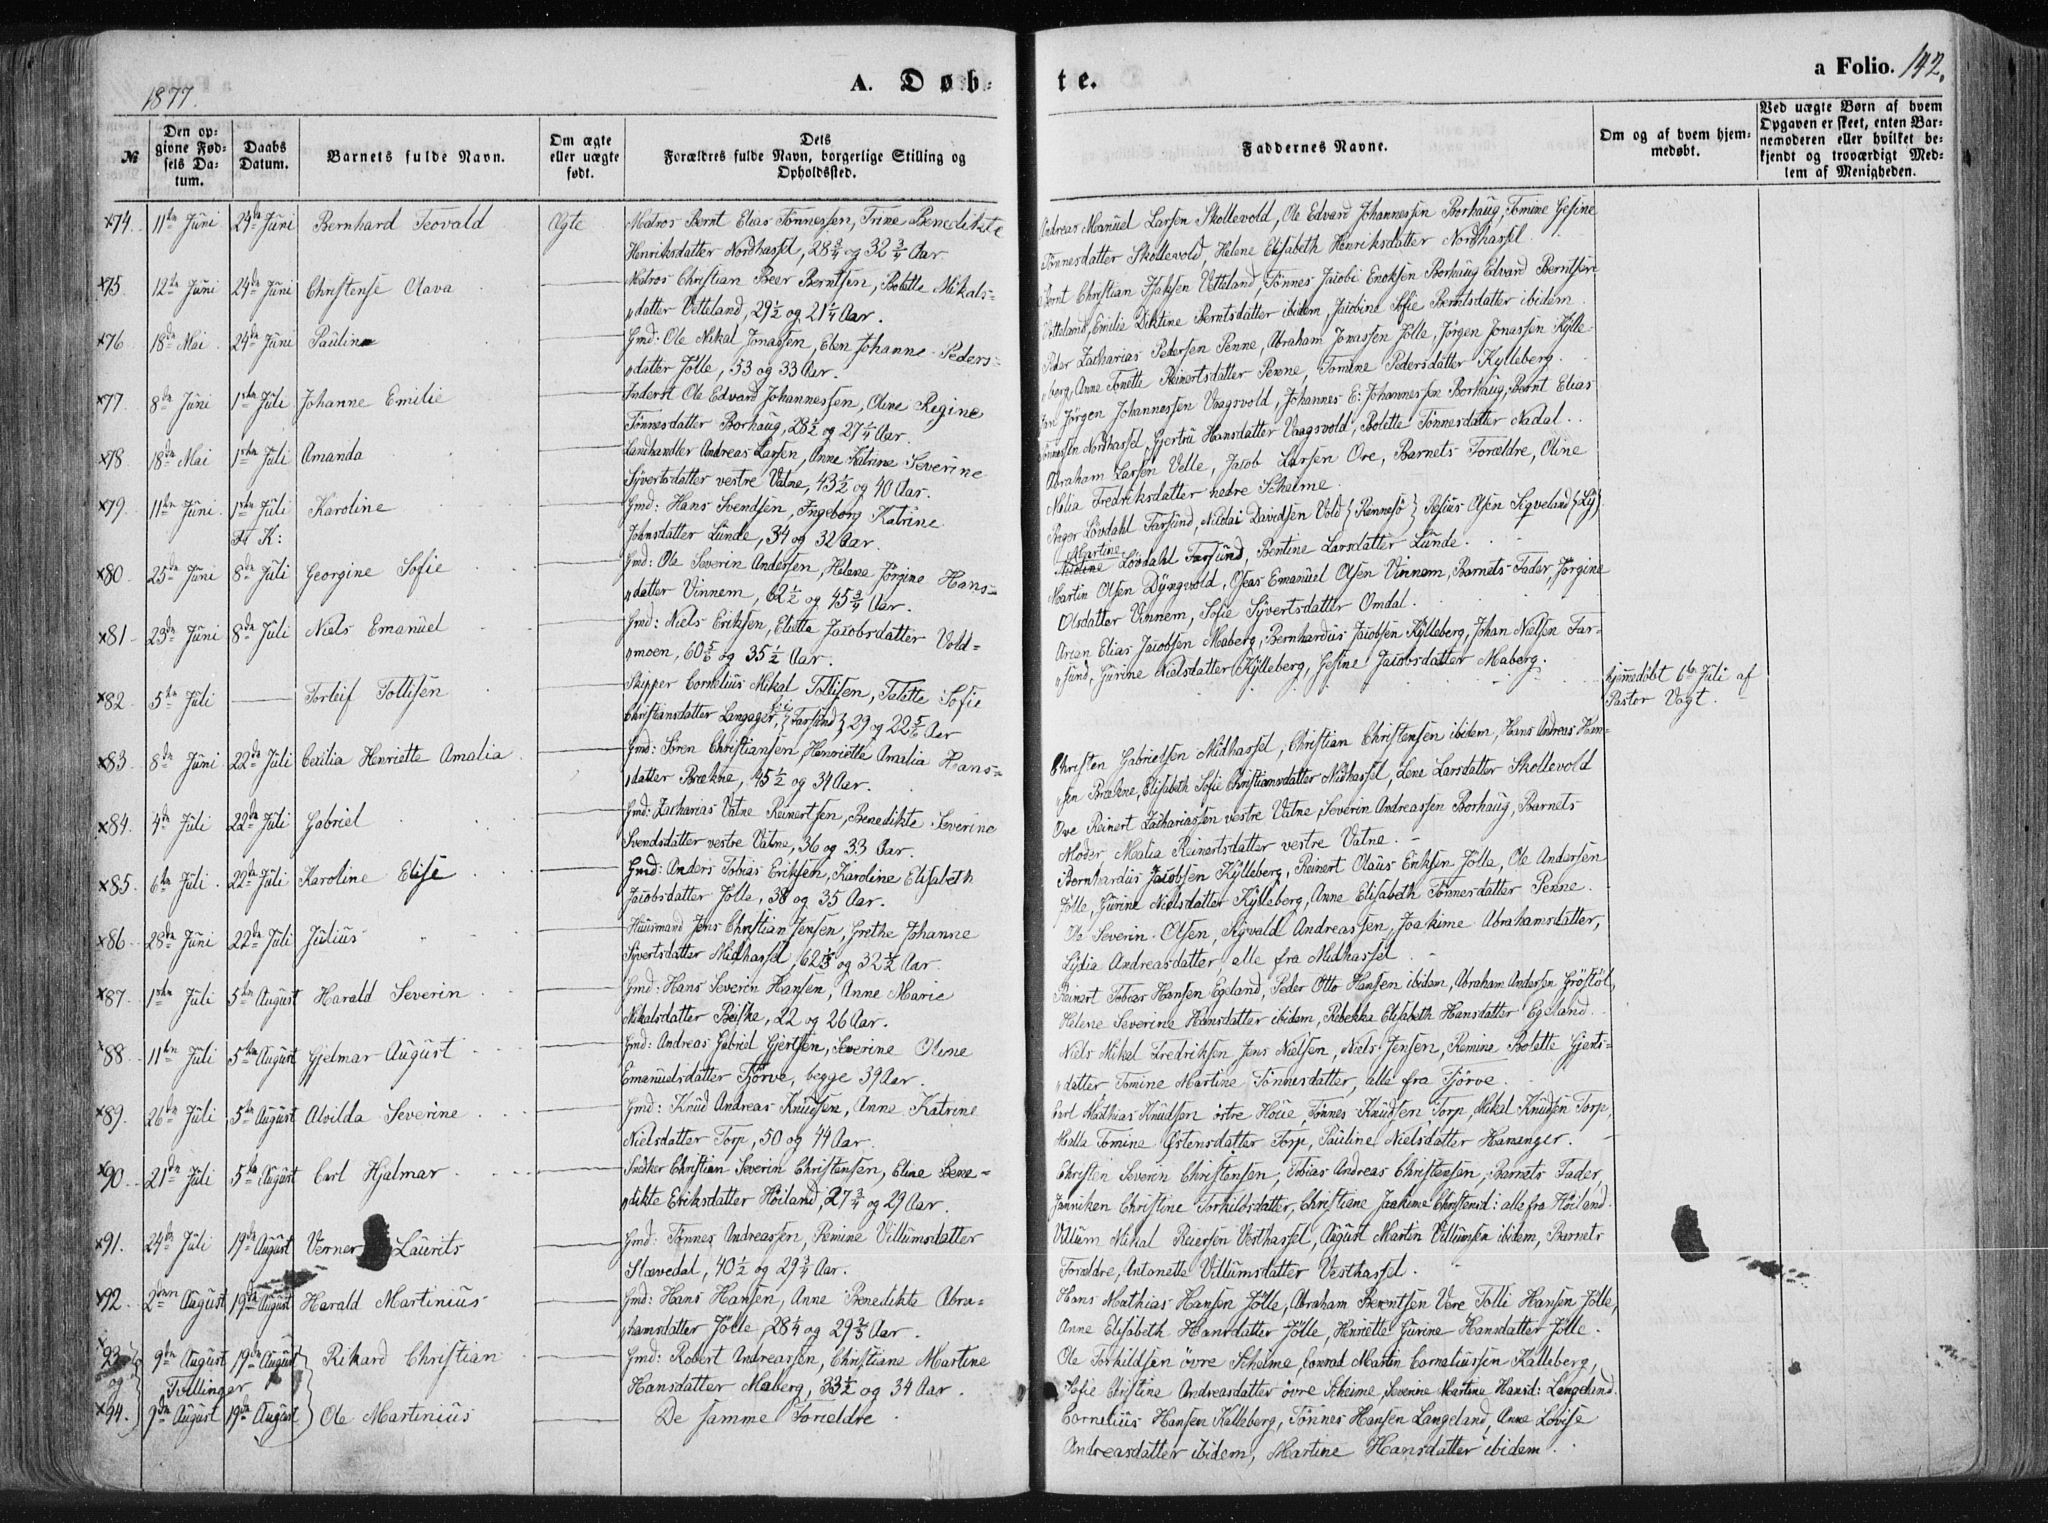 1877.
A. Døb-
te.
a Folio. 142.
№
Den opgivne Fødsels Datum.
Daabs Datum.
Barnets fulde Navn.
Om ægte eller uægte født.
Dets Forældres fulde Navn, borgerlige Stilling og Opholdssted.
Faddernes Navne.
Om og af hvem hjemmedøbt.
Ved uægte Børn af hvem Opgaven er skeet, enten Barnemoderen eller hvilket bekjendt og troværdigt Medlem af Menigheden.
74. 11te Juni 24de Juni Bernhard Teovald Ægte Matros Bernt Elias Tønnessen, Trine Benedikte
Henriksdatter Nordhassel, 28 3/4 og 32 3/4 Aar.
Andreas Manuel Larsen Skollevold, Ole Edvard Johannessen Borhaug, Tomine Gesine
Tønnesdatter Skollevold, Helene Elisabeth Henriksdatter Nordhassel.
75. 12te Juni 24de Juni Christense Olava Matros Christian Beer Berntsen, Bolette Mikals-
datter Vetteland, 29 1/2 og 21 1/4 Aar.
Bernt Christian Isaksen Vetteland, Tønnes Jacobi Enoksen Borhaug Edvard Berntsen
Vetteland, Emilie Diktine Berntsdatter ibidem, Jacobine Sofie Berntsdatter ibidem.
76 18de Mai 24de Juni Pauline Gmd: Ole Mikal Jonassen, Elen Johanne Peders-
datter Jølle, 33 og 33 Aar.
Peder Zacharias Pedersen Penne, Abraham Jonassen Jølle, Jørgen Jonassen Kylle-
berg, Anne Tonette Reinertsdatter Penne, Tomine Pedersdatter Kylleberg.
77. 8de Juni 1ste Juli Johanne Emilie Inderst Ole Edvard Johannessen, Oline Regine
Tønnesdatter Borhaug, 28 1/2 og 27 1/4 Aar.
Jan Jørgen Johannessen Vaagsvold, Johannes E: Johannessen Borhaug, Bernt Elias
Tønnessen Nordhassel, Gjertru Hansdatter Vaagsvold, Bolette Tønnesdatter Nadal.
78. 18de Mai 1ste Juli Amanda Landhandler Andreas Larsen, Anne Katrine Severine
Syvertsdatter vestre Vatne, 43 1/2 og 40 Aar.
Abraham Larsen Velle, Jacob Larsen Ore, Barnets Forældre, Oline
Malia Fredriksdatter nedre Scheime.
79. 11te Juni. 1ste Juli Karoline Gmd: Hans Svendsen, Ingeborg Katrine
F: K: Johnsdatter Lunde, 34 og 32 Aar.
Lövdahl Farsund, Nicolai Davidsen Vold {Rennesø} Olsen Sigveland
Martine Lövdahl Farsund, Bentine Larsdatter Lunde.
80. 25de Juni 8de Juli Georgine Sofie Gmd: Ole Severin Andersen, Helene Jørgine Hans-
datter Vinnem, 62 1/2 og 45 3/4 Aar.
Martin Olsen Dyngvold, Oseas Emanuel Olsen Vinnem, Barnets Fader, Jørgine
Olsdatter Vinnem, Sofie Syvertsdatter Omdal.
81. 23de Juni 8de Juli Niels Emanuel Gmd: Niels Eriksen, Elietta Jacobsdatter Vold-
moen, 60 5/6 og 35 1/2 Aar.
Arian Elias Jacobsen Maberg, Bernhardus Jacobsen Kylleberg, Johan Nielsen Far-
sund, Gurine Nielsdatter Kylleberg, Gesine Jacobsdatter Maberg.
82 5te Juli Torleif Tollisen Skipper Cornelius Mikal Tollisen, Talette Sofie
Christiansdatter Langager, {Farsund} 29 og 22 5/6 Aar
hjemmedøbt 6te Juli af
Pastor Vogt.
83. 8de Juni 22de Juli Cecilia Henriette Amalia Gmd: Søren Christiansen, Henriette Amalia Hans-
datter Brekne, 45 1/2 og 34 Aar.
Christen Gabrielsen Midhassel, Christian Christensen ibidem, Hans Andreas Han-
sen Brekne, Elisabeth Sofie Christiansdatter Midhassel, Lene Larsdatter Skollevold
84. 4de Juli 22de Juli Gabriel Gmd: Zacharias Vatne Reinertsen, Benedikte Severine
Svendsdatter vestre Vatne, 36 og 33 Aar.
Ove Reinert Zachariassen vestre Vatne, Severin Andreassen Borhaug, Barnets
Moder, Malia Reinertsdatter vestre Vatne.
85. 6te Juli 22de Juli Karoline Elise Gmd: Anders Tobias Eriksen, Karoline Elisabeth
Jacobsdatter Jølle, 38 og 35 Aar.
Bernhardus Jacobsen Kylleberg, Reinert Olaus Eriksen Jølle, Ole Andersen
Jølle, Gurine Nielsdatter Kylleberg, Anne Elisabeth Tønnesdatter Penne.
86 28de Juni 22de Juli Julius Huusmand Jens Christian Jensen, Grethe Johanne
Syvertsdatter Midhassel, og 32 1/2 Aar.
Ole Severin Olsen, Sigvald Andreassen, Joakime Abrahamsdatter,
Lydia Andreasdatter, alle fra Midhassel
87. 1ste Juli 5te August Harald Severin Gmd: Hans Severin Hansen, Anne Marie
Mikalsdatter Briske, 22 og 26 Aar.
Reinert Tobias Hansen Egeland, Peder Otto Hansen ibidem, Abraham Andersen Grøstøl,
Helene Severine Hansdatter ibidem, Rebekka Elisabeth Hansdatter Egeland.
88. 11te Juli 5te August Hjelmar August Gmd: Andreas Gabriel Gjertsen, Severine Oline
Emanuelsdatter Tjørve, begge 39 Aar.
Niels Mikal Fredriksen Jens Nielsen, Niels Jensen, Remine Bolette Gjerts-
datter Tomine Martine Tønnesdatter, alle fra Tjørve.
89. 26de Juli 5te August Alvilda Severine Gmd: Knud Andreas Knudsen, Anne Katrine
Nielsdatter Torp, 50 og 44 Aar.
Carl Mathias Knudsen østre Høie, Tønnes Knudsen Torp, Mikal Knudsen Torp,
Malla Tomine Østensdatter Torp, Pauline Nielsdatter Hananger.
90. 21de Juli 5te August Carl Hjalmar Snedker Christian Severin Christensen, Eline Bene-
dikte Eriksdatter Høiland, 27 3/4 og 29 Aar.
Christen Severin Christensen, Tobias Andreas Christensen, Barnets Fader,
Janniken Christine Torkildsdatter, Christiane Joakime Christensd: alle fra Høiland.
91. 24de Juli 19de August Verner Laurits Gmd: Tønnes Andreassen, Remine Villumsdatter
Stævedal, 40 1/2 og 29 3/4 Aar.
Villum Mikal Reiersen Vesthassel, August Martin Villumsen ibidem, Barnets
Forældre, Antonette Villumsdatter Vesthassel.
92. 2den August 19de August Harald Martinius Gmd: Hans Hansen, Anne Benedikte Abra-
hamsdatter Jølle, 28 1/4 og 29 2/3 Aar.
Hans Mathias Hansen Jølle, Abraham Berentsen Vere, Tolli Hansen Jølle,
Anne Elisabeth Hansdatter Jølle, Henriette Gurine Hansdatter Jølle.
93 9de August 19de August Rikard Christian Gmd: Robert Andreassen, Christiane Martine
og Tvillinger Hansdatter Maberg, 33 1/2 og 34 Aar.
Ole Torkildsen øvre Scheime, Conrad Martin Corneliussen Kalleberg,
Sofie Christine Andreasdatter øvre Scheime, Severine Martine Hansd: Langeland.
94. 9de August 19de August Ole Martinius De samme Forældre.
Cornelius Hansen Kalleberg, Tønnes Hansen Langeland, Anne Lovise
Andreasdatter ibidem, Martine Hansdatter ibidem.